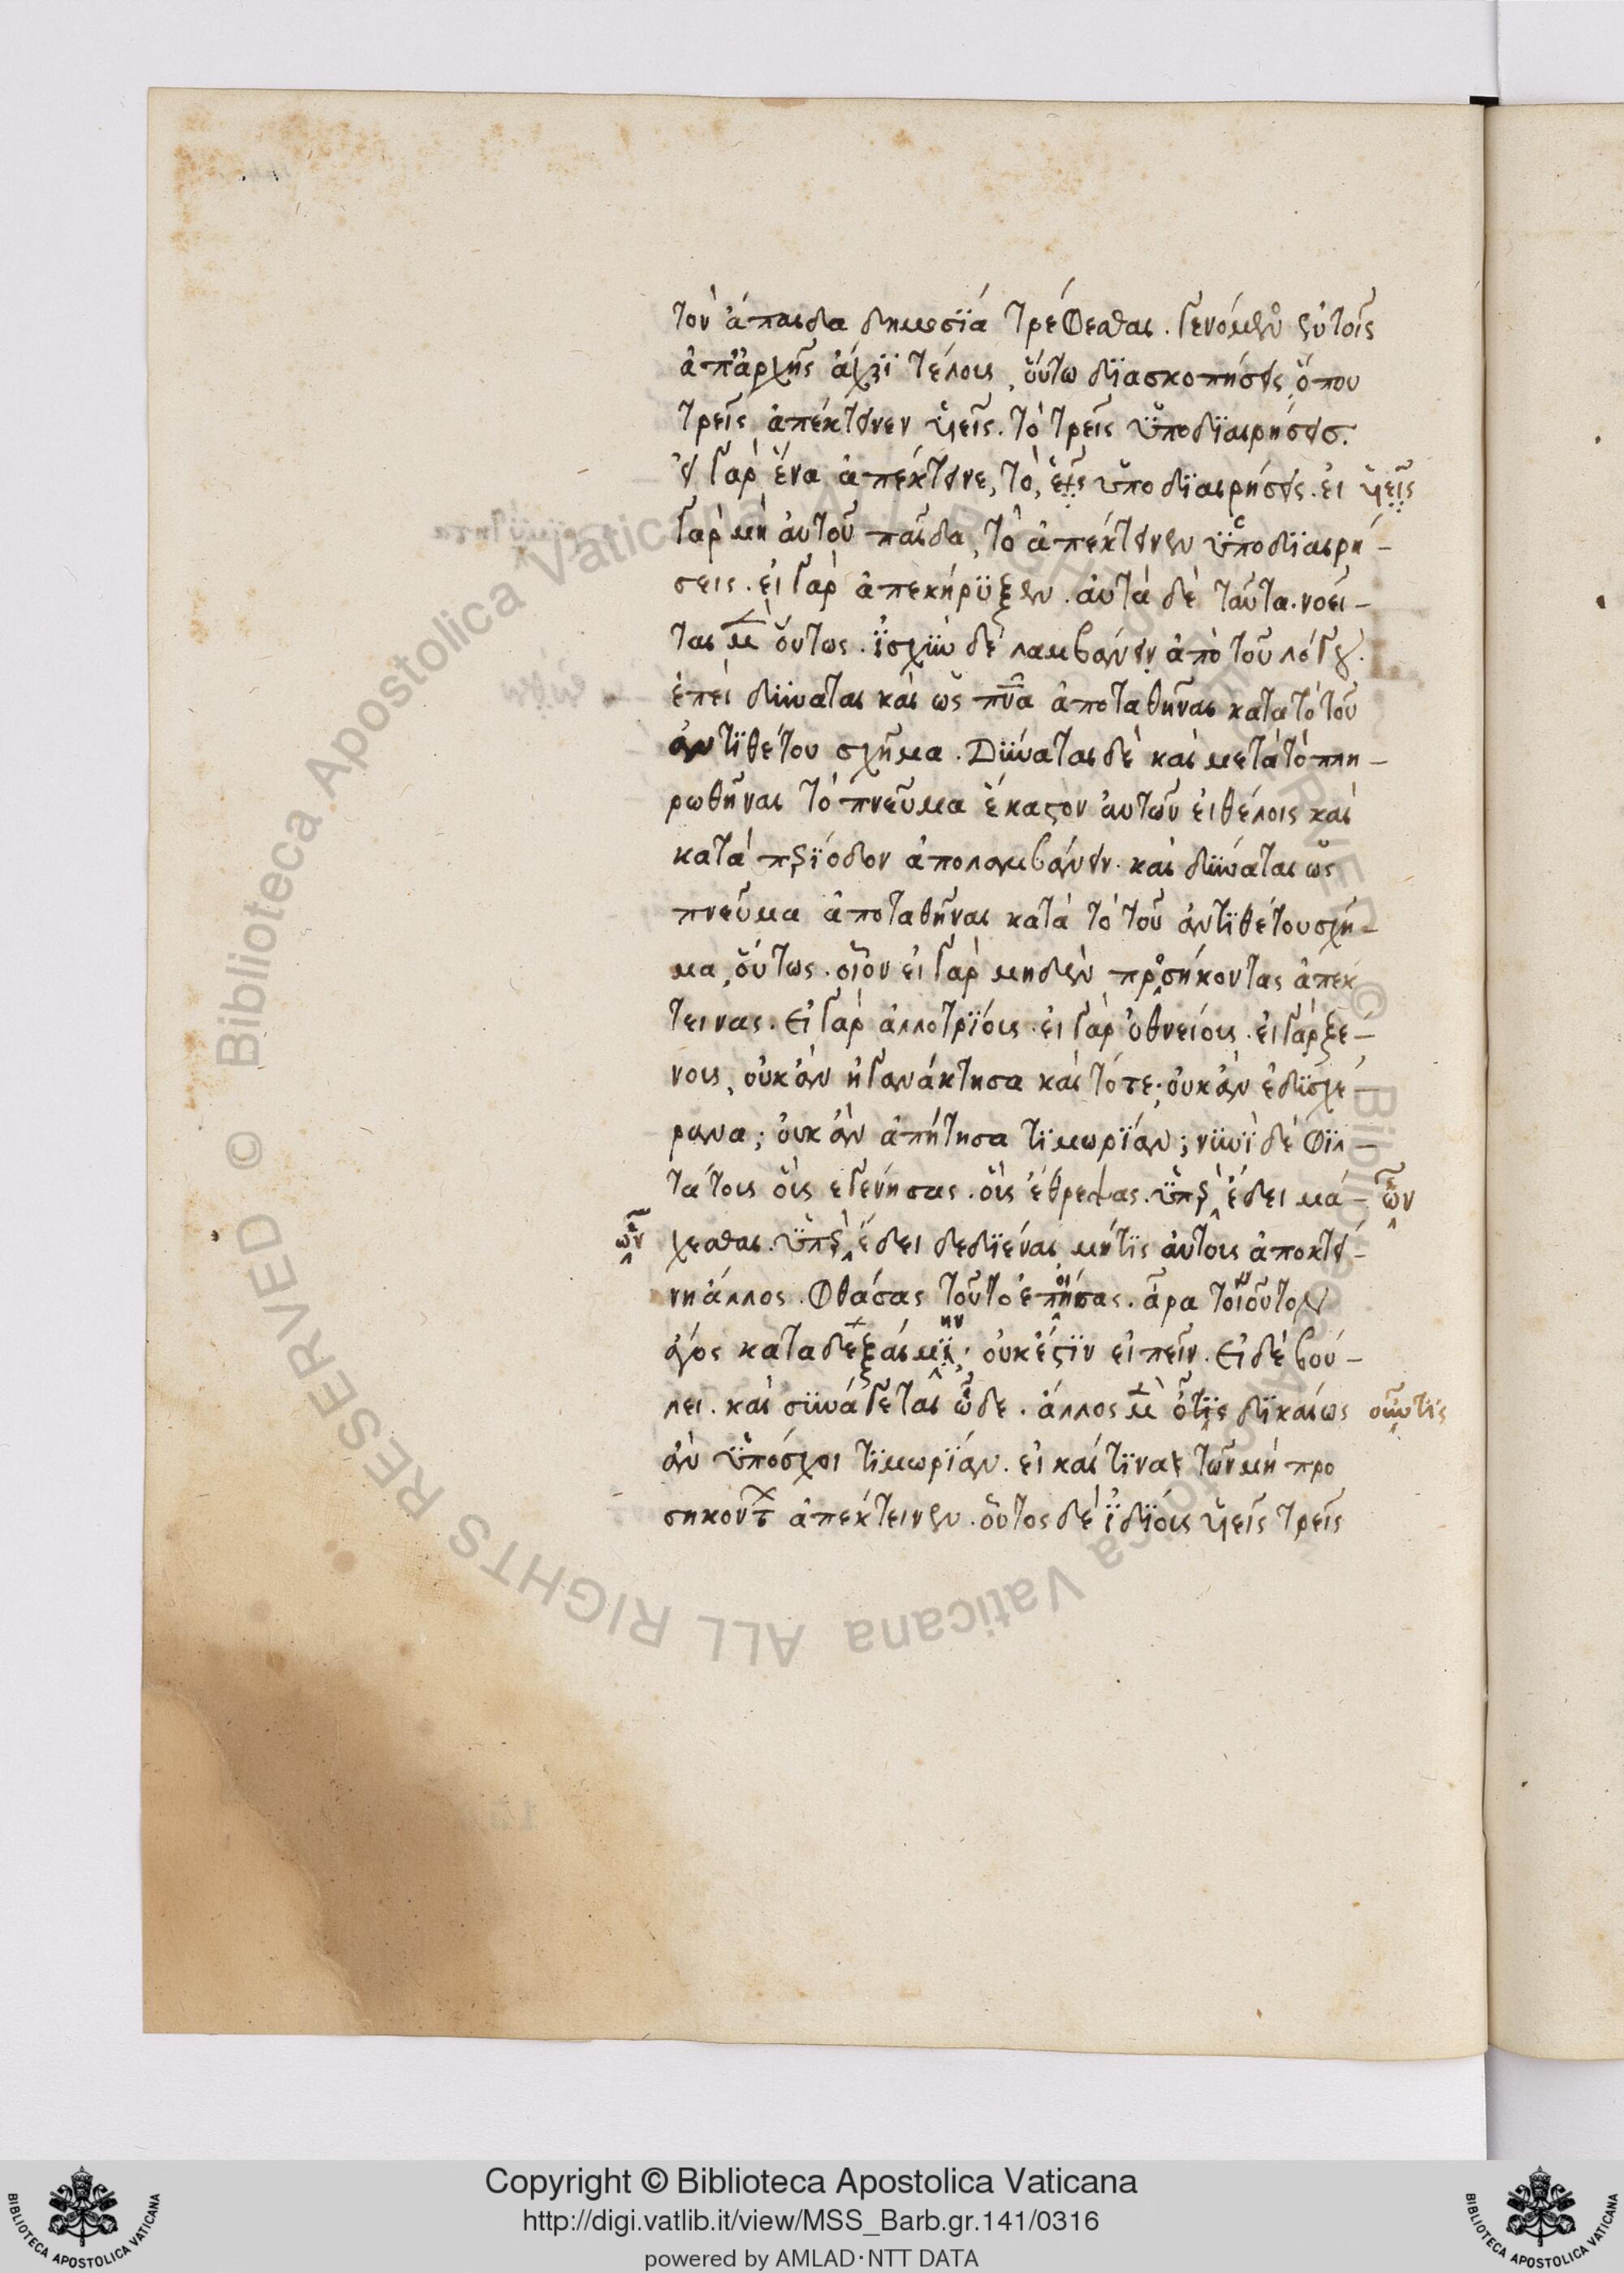 τὸν ἄπαιδα δημοσίᾳ τρέφεσθαι. γενόμενος ἐν τοῖς
ἀπ' ἀρχῆς ἄχρι τέλους, οὕτω διασκοπήσεις, ὅπου
τρεῖς ἀπέκτεινεν υἱεῖς. τὸ τρεῖς ὑποδιαιρήσεις.
εἰ γὰρ ἕνα ἀπέκτεινε, τὸ, υἱεῖς ὑποδιαιρήσεις. εἰ υἱεῖς
γὰρ μὴ αὐτοῦ παῖδα, τὸ ἀπέκτεινεν ὑποδιαιρή-
σεις. εἰ γὰρ ἀπεκήρυξεν. αὐτὰ δὲ ταῦτα. νοεῖ-
ται μὲν οὕτως. ἰσχὺν δὲ λαμβάνειν ἀπὸ τοῦ λόγου.
ἐπεὶ δύναται καὶ ὡς πνα ἀποταθῆναι κατὰ τὸ τοῦ
ἀντιθέτου σχῆμα. Δύναται δὲ καὶ μετὰ τὸ πλη-
ρωθῆναι τὸ πνεῦμα ἕκαστον αὐτῶν εἰ θέλοις καὶ
κατὰ περίοδον ἀπολαμβάνειν. καὶ δύναται ὡς
πνεῦμα ἀποταθῆναι κατὰ τὸ τοῦ ἀντιθέτου σχῆ-
μα, οὕτως. οἷον εἰ γὰρ μηδὲν προσήκοντας ἀπέκ
τεινας. Εἰ γὰρ ἀλλοτρίους. εἰ γὰρ ὀθνείους. εἰ γὰρ ξέ-
νους, οὐκ ἂν ἠγανάκτησα καὶ τότε; οὐκ ἂν ἐδυσχέ-
ρανα; οὐκ ἂν ἀπῄτησα τιμωρίαν; νυνὶ δὲ φιλ-
τάτους οὓς ἐγέννησας. οὓς ἔθρεψας. ὑπὲρ ἔδει μά- ὧν
ὧν χεσθαι. ὑπὲρ ἔδει δεδιέναι μή τις αὐτοὺς ἀποκτεί-
νῃ ἄλλος. Φθάσας τοῦτο ἐποίησας. ἆρα τοιοῦτον
ἄγος καταδεξαίμην; οὐκ ἔστιν εἰπεῖν. Εἰ δὲ βού-
λει. καὶ συνάγεται ὧδε. ἄλλος μὲν ὅτις δικαίως οὖν τις
ἂν ὑπόσχοι τιμωρίαν. εἰ καί τινας τῶν μὴ προ
σηκόντων ἀπέκτεινεν. οὗτος δὲ ἰδίους υἱεῖς τρεῖς
Copyright © Biblioteca Apostolica Vaticana
http://digi.vatlib.it/view/MSS_Barb.gr.141/0316
powered by AMLAD·NTT DATA